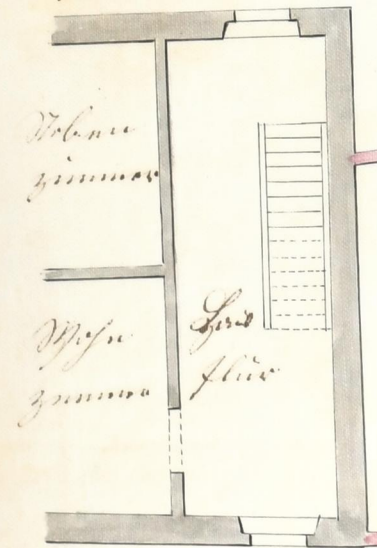 Neben
zimmer
Wohn
zimmer
Haus
flur